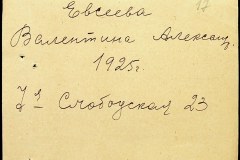 17
Евсеева
Валентина Алексан.
1925г.
2я Слободская 23